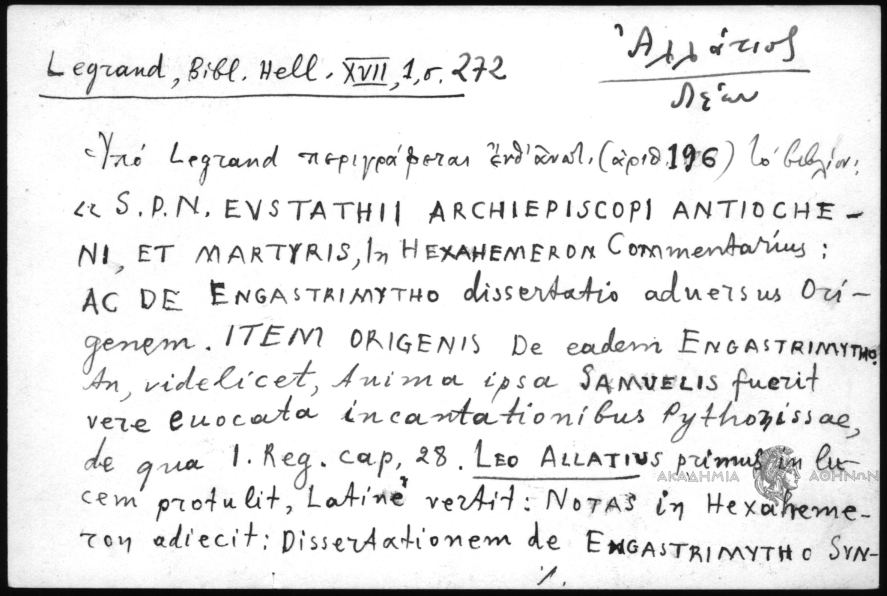 Legrand, Bibl. Hell. XVII, 1, σ. 272
Ἀλλάτιος
Λέων
Ὑπό Legrand περιγράφεται ἐνθ' ἀνωτ. (ἀριθ. 196) τό βιβλίον:
« S. P. N. EVSTATHII ARCHIEPISCOPI ANTIOCHE-
NI, ET MARTYRIS, In HEXAHEMERON Commentarius:
AC DE ENGASTRIMYTHO dissertatio aduersus Ori-
genem. ITEM ORIGENIS De eadem ENGASTRIMYTHO.
An, videlicet, Anima ipsa SAMVELIS fuerit
vere euocata incantationibus Pythonissae,
de qua 1. Reg. cap, 28. LEO ALLATIUS primus in lu-
cem protulit, Latinè vertit: NOTAS in Hexaheme-
ron adiecit: Dissertationem de ENGASTRIMYTHO SYN-
./.
ΑΚΑΔΗΜΙΑ ΑΘΗΝΩΝ